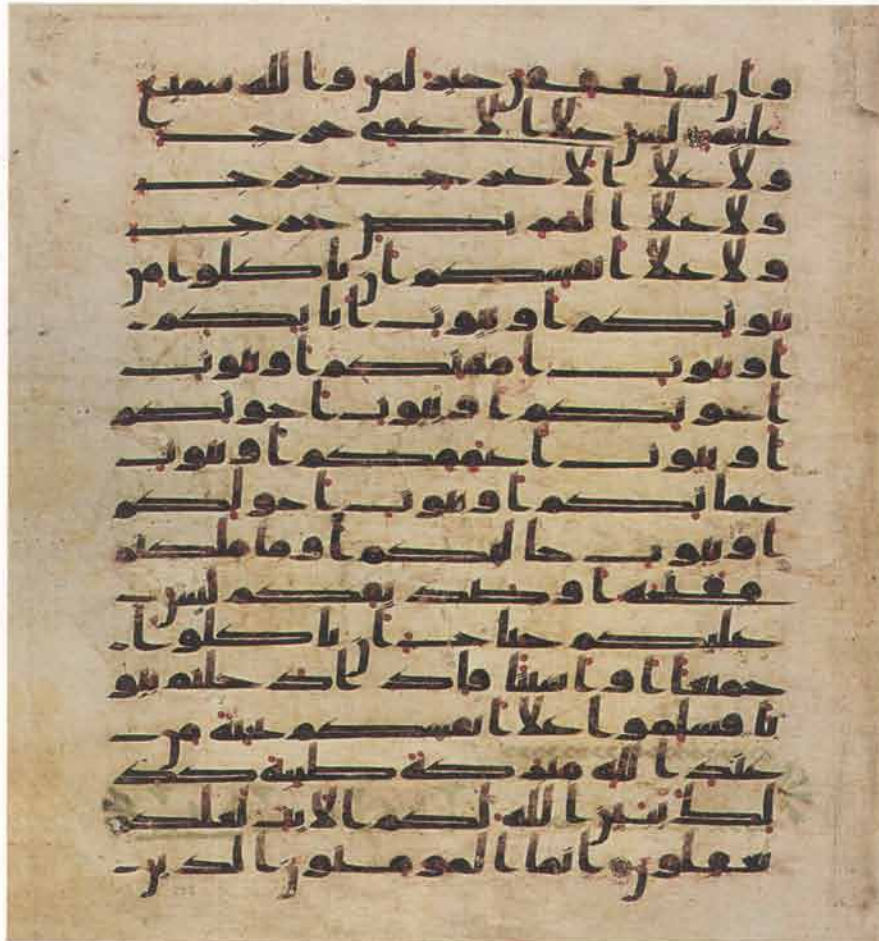 وان يستعففن خير لهن والله سميع
عليم ليس علا الاعمى حرج
ولا علا الاعرج حرج
ولا علا المريض حرج
ولا علا انفسكم ان تاكلوا من
بيوتكم او بيوت ابايكم
او بيوت امهتكم او بيوت
اخونكم او بيوت اخوتكم
او بيوت اعممكم او بيوت
عماتكم او بيوت اخولكم
او بيوت خالتكم او ما ملكتم
مفتحه او صديقكم ليس
عليكم جناح ان تاكلوا
جميعا او اشتتا فاذا دخلتم بيو
تا فسلموا علا انفسكم تحية من
عند الله مبركة طيبة كذ
لك يبين الله لكم الايت لعلكم
تعقلون انما المومنون الذين